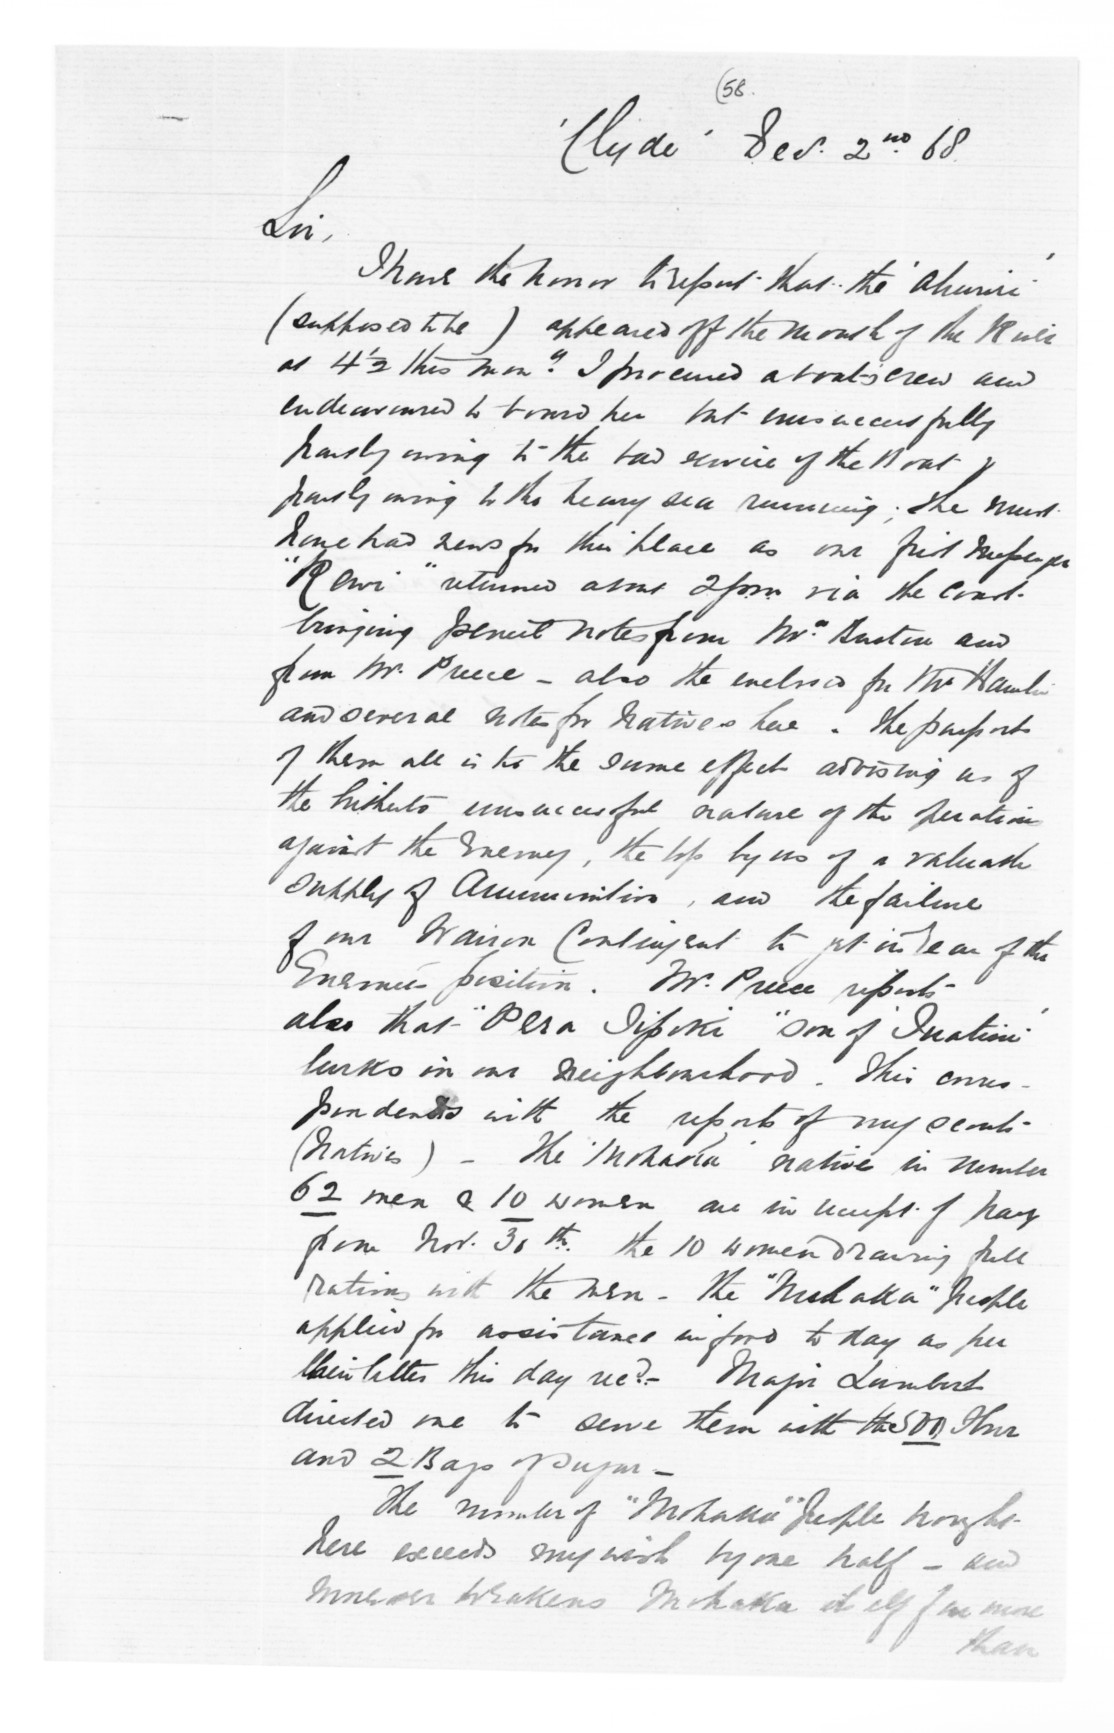 (58.
'Clyde' Dec. 2nd 68.
Sir,
I have the honor to report that the 'Ahuriri'
(supposed to be) appeared off the mouth of the River
at 4½ this morng. I procured a boat's crew and
endeavoured to board her but unsuccessfully
partly owing to the bad service of the Boat &
partly owing to the heavy sea running; she must
have had news for this place as our first messenger
"Rewi" returned about 2 p.m. via the Coast
bringing pencil notes from Mr. Burton and
from Mr. Preece - also the enclosed for Mr Hamlin
and several notes for Natives here. The purport
of them all is to the same effect advising us of
the hitherto unsuccessful nature of the operations
against the Enemy, the loss by us of a valuable
supply of Ammunition, and the failure
of our Wairoa Contingent to get in rear of the
Enemies position. Mr. Preece reports
also that "Pera Tipoki" son of 'Ihaka'
lurks in our neighbourhood. This corres-
pondends with the reports of my scouts
(Natives) - The 'Mohaka' natives in number
62 men & 10 women are in receipt of pay
from Nov. 30th. the 10 women drawing full
rations with the men - the "Mohaka" People
applied for assistance in food to day as per
their letter this day recd. - Major Lambert
directed me to serve them with the 500 flour
and 2 Bags of Sugar -
The number of "Mohaka" People brought
here exceeds my wish by one half - and
moreover weakens Mohaka itself far more
than